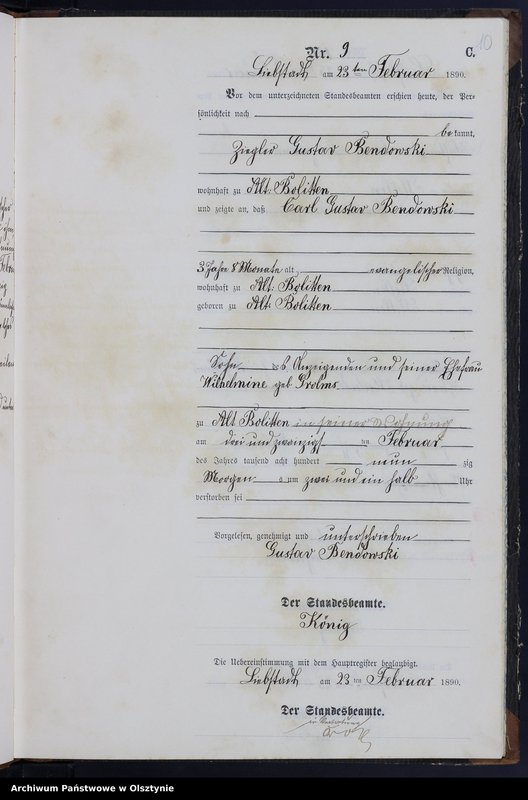 10
Nr. 9 C.
Liebstadt am 23 ten Februar 1890.
Vor dem unterzeichneten Standesbeamten erschien heute, der Per-
sönlichkeit nach
be kannt,
Ziegler Gustav Bendowski
wohnhaft zu Alt: Bolitten
und zeigte an, daß Carl Gustav Bendowski
3 Jahr 8 Monate alt, evangelischer Religion,
wohnhaft zu Alt: Bolitten
geboren zu Alt: Bolitten
Sohn des Anzeigenden und seiner Ehefrau
Wilhelmine geb Grolms
zu Alt Bolitten in seiner Wohnung
am drei und zwanzigst ten Februar
des Jahres tausend acht hundert neun zig
Morgens um zwei und ein halb Uhr
verstorben sei
Vorgelesen, genehmigt und unterschrieben
Gustav Bendowski
Der Standesbeamte.
König
Die Uebereinstimmung mit dem Hauptregister beglaubigt.
Liebstadt am 23 ten Februar 1890.
Der Standesbeamte.
in Vertretung
Archiwum Państwowe w Olsztynie